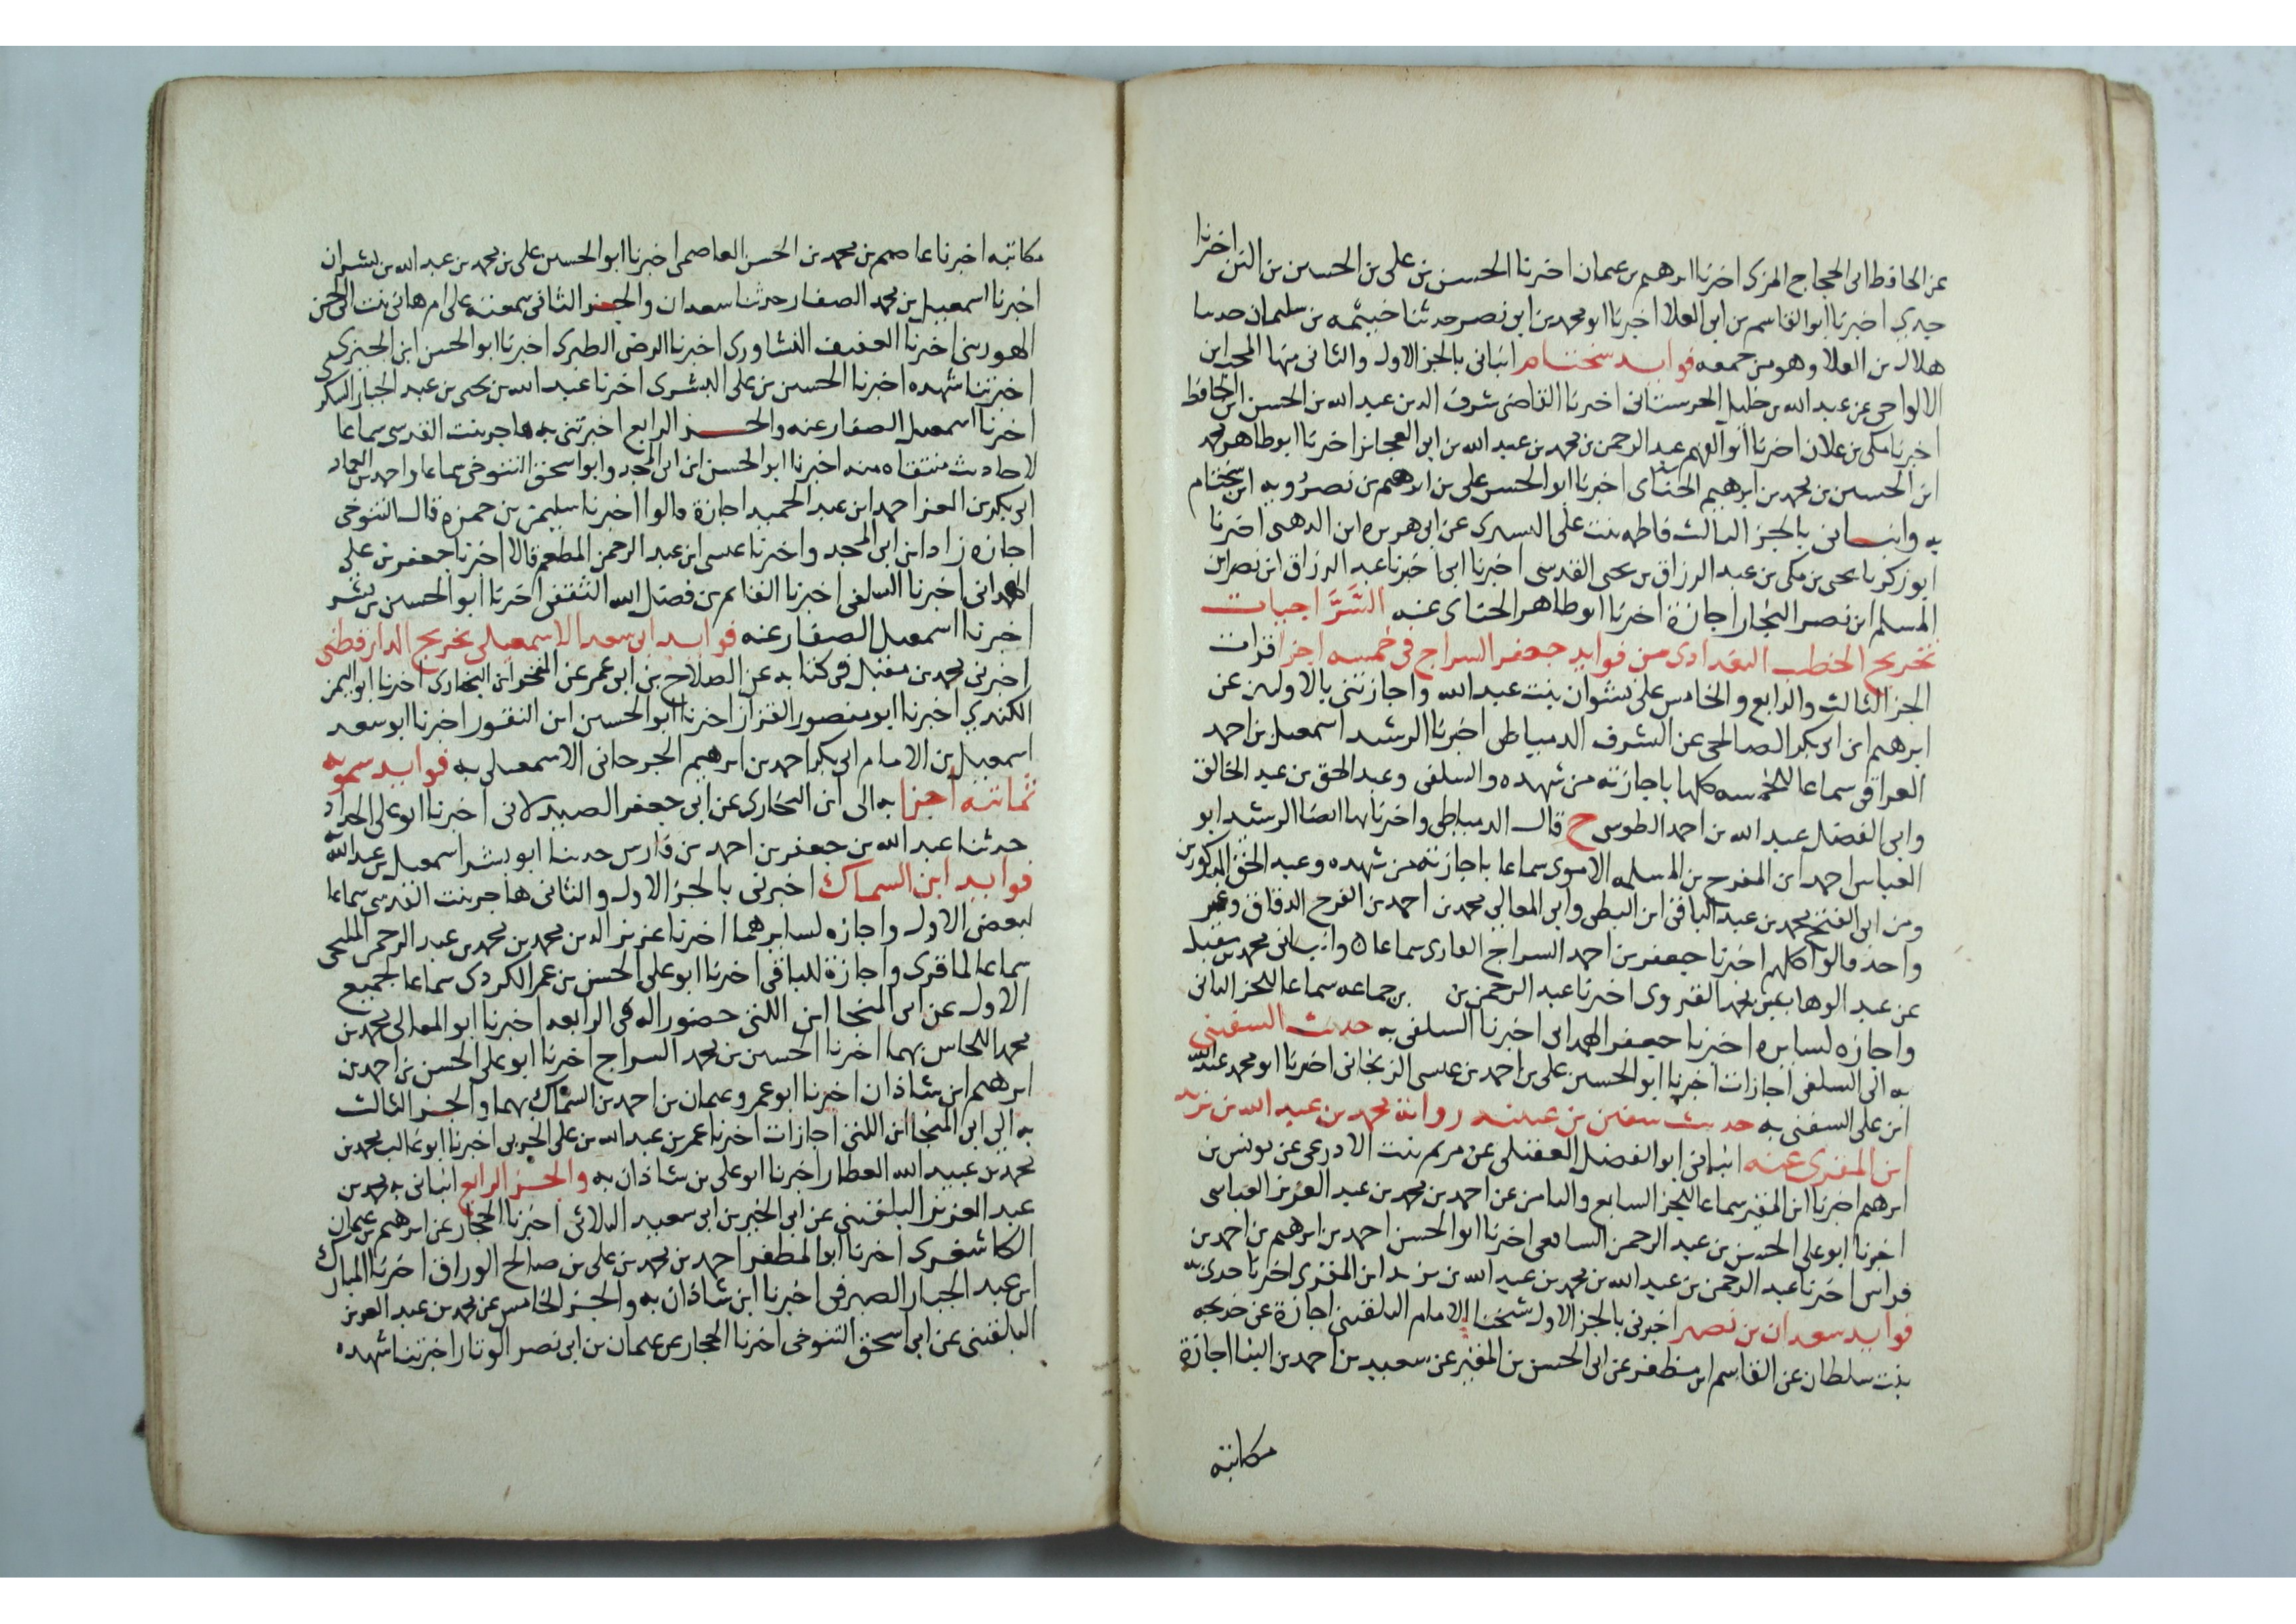 عن الحافظ ابى الحجاج المزى اخبرنا ابرهيم بن عمان اخبرنا الحسن بن على بن الحسين بن البن اخبرنا
جدي اخبرنا ابو القاسم بن ابى العلا اخبرنا ابو محمد بن ابى نصر حدثنا خيثمه بن سليمان حدثنا
هلال بن العلا وهو من جمعه فوايد سختام انبانى بالجز الاول والثانى منها المحب ابن
الالواحى عن عبد الله بن خليل الحرستانى اخبرنا القاضى شرف الدين عبد الله بن الحسن ابن الحافظ
اخبرنا مكى بن علان اخبرنا ابو الفهم عبد الرحمن بن محمد بن عبد الله بن ابى العجايز اخبرنا ابو طاهر محمد
ابن الحسين بن محمد بن ابرهيم الحنائ اخبرنا ابو الحسن على بن ابرهيم بن نصرويه ابن سختام
به وانبانى بالجز الثالث فاطمه بنت على اليسيرى عن ابى هريره ابن الذهبى اخبرنا
ابو زكريا يحى بن مكى بن عبد الرزاق بن يحى القدسى اخبرنا ابى اخبرنا عبد الرزاق ابن نصر ابن
المسلم ابن نصر النجار اجازة اخبرنا ابو طاهر الحنائ عنه السَّرَّاجيات
تخريج الخطيب البغدادى من فوايد جعفر السراج فى خمسه اجزا قرات
الجز الثالث والرابع والخامس على نشوان بنت عبد الله واجازتنى بالاولين عن
ابرهيم ابن ابى بكر الصالحى عن الشرف الدمياطى اخبرنا الرشيد اسمعيل بن احمد
العراقى سماعا للخمسه كلها باجازته من شهده والسلفى وعبد الحق بن عبد الخالق
وابى الفضل عبد الله بن احمد الطوسى ح قال الدمياطى واخبرنا بها ايضا الرشيد ابو
العباس احمد ابن المفرح بن المسلمه الاموى سماعا باجازته من شهده وعبد الحق المذكورين
ومن ابى الفتح محمد بن عبد الباقى ابن البطى وابى المعالى محمد بن احمد بن الفرح الدقاق وغير
واحد قالوا كلهم اخبرنا جعفر بن احمد السراج القارى سماعا ه وانبانى محمد بن مقبل
عن عبد الوهاب بن محمد القروى اخبرنا عبد الرحمن بن بن جماعه سماعا للجز الثانى
واجازه لسايره اخبرنا جعفر الهمدانى اخبرنا السلفى به حديث السفينى
به الى السلفى اجازات اخبرنا ابو الحسين على بن احمد بن عيسى الزنجانى اخبرنا ابو محمد عبد الله
ابن على السفنى به حديث سفين بن عيينه رواية محمد بن عبد الله بن يزيد
ابن المقرى عنه انبانى ابو الفضل العقيلى عن مريم بنت الاذرعى عن يونس بن
ابرهيم اخبرنا ابن المقير سماعا للجز السابع والثامن عن احمد بن محمد بن عبد العزيز العباسى
اخبرنا ابو على الحسن بن عبد الرحمن الشافعى اخبرنا ابو الحسن احمد بن ابرهيم بن احمد بن
فراس اخبرنا عبد الرحمن بن عبد الله بن محمد بن عبد الله بن يزيد ابن المقرى اخبرنا جدى به
فوايد سعدان بن نصر اخبرنى بالجز الاول شيخنا الامام البلقينى اجازة عن خديجه
بنت سلطان عن القاسم ابن مظفر عن ابى الحسن بن المقير عن سعيد بن احمد بن البنا اجازة
مكاتبه
مكاتبه اخبرنا عاصم بن محمد بن الحسن العاصمى اخبرنا ابو الحسين على بن محمد بن عبد الله بن بشران
اخبرنا اسمعيل بن محمد الصفار حدثنا سعدان والجز الثانى سمعته على ام هانى بنت ابى الحسن
الهورينى اخبرنا العفيف النشاورى اخبرنا الرضى الطبرى اخبرنا ابو الحسن ابن الجميزى
اخبرتنا شهده اخبرنا الحسين بن على البسرى اخبرنا عبد الله بن يحيى بن عبد الجبار السكرى
اخبرنا اسمعيل الصفار عنه والجز الرابع اخبرتنى به هاجر بنت القدسى سماعا
لاحاديث منتقاه منه اخبرنا ابو الحسن ابن ابى المجد وابو اسحق التنوخى سماعا واحمد بن العماد
ابى بكر بن العز احمد ابن عبد الحميد اجازة قالوا اخبرنا سليمن بن حمزه قال التنوخى
اجازه زاد ابن ابى المجد واخبرنا عيسى ابن عبد الرحمن المطعم قالا اخبرنا جعفر بن على
الهمدانى اخبرنا السلفى اخبرنا القاسم بن فضل الله الثقفى اخبرنا ابو الحسين بن بشر
اخبرنا اسمعيل الصفار عنه فوايد ابى سعد الاسمعيلى تخريج الدارقطنى
اخبرنى محمد بن مقبل فى كتابه عن الصلاح بن ابى عمر عن الفخر ابن البخارى اخبرنا ابو اليمن
الكندي اخبرنا ابو منصور القزاز اخبرنا ابو الحسين ابن النقور اخبرنا ابو سعد
اسمعيل بن الامام ابى بكر احمد بن ابرهيم الجرجانى الاسمعيلى به فوايد سمويه
ثمانيه اجزا به الى ابن البخارى عن ابى جعفر الصيدلانى اخبرنا ابو على الحداد
حدثنا عبد الله بن جعفر بن احمد بن فارس حدثنا ابو بشر اسمعيل بن عبد الله
فوايد ابن السماك اخبرتنى بالجز الاول والثانى هاجر بنت القدسى سماعا
لبعض الاول واجازه لسايرهما اخبرنا عزيز الدين محمد بن محمد بن عبد الرحمن المليجى
سماعا لما قرى واجازة للباقى اخبرنا ابو على الحسن بن عمر الكردى سماعا لجميع
الاول عن ابى المنجا ابن اللتى حضورا له فى الرابعه اخبرنا ابو المعالى محمد بن
محمد اللحاس بهما اخبرنا الحسين بن محمد السراج اخبرنا ابو على الحسن بن احمد بن
ابرهيم ابن شاذان اخبرنا ابو عمرو عثمان بن احمد بن السماك بهما والجز الثالث
به الى ابى المنجا ابن اللتى اجازات اخبرنا عمر بن عبد الله بن على الحربى اخبرنا ابو غالب محمد بن
محمد بن عبيد الله العطار اخبرنا ابو على بن شاذان به والجز الرابع انبانى به محمد بن
عبد العزيز البلقينى عن ابى الخير بن ابى سعيد العلائى اخبرنا الحجار عن ابرهيم بن عثمان
الكاشغرى اخبرنا ابو المظفر احمد بن محمد بن على بن صالح الوراق اخبرنا المبارك
ابن عبد الجبار الصيرفى اخبرنا ابن شاذان به والجز الخامس عن محمد بن عبد العزيز
البلقينى عن ابى اسحق التنوخى اخبرنا الحجار عن عثمان بن ابى نصر الوتار اخبرتنا شهده